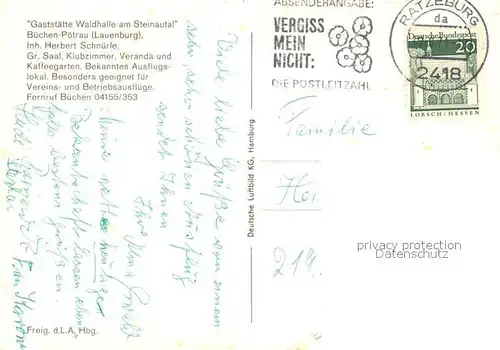 "Gaststätte Waldhalle am Steinautal"
Büchen-Pötrau (Lauenburg),
Inh. Herbert Schnürle,
Gr. Saal, Klubzimmer, Veranda und
Kaffeegarten. Bekanntes Ausflugs-
lokal. Besonders geeignet für
Vereins- und Betriebsausflüge.
Fernruf Büchen 04155/353
Viele liebe Grüße von einem
sehr, sehr schönen Ausflug
sendet Ihnen
Ihre
Meine
Bekanntschaft lassen eben-
falls bestens grüßen.
Freig. d.L.A. Hbg.
Deutsche Luftbild KG, Hamburg
ABSENDERANGABE:
VERGISS
MEIN
NICHT:
DIE POSTLEITZAHL
RATZEBURG
da
2418
Deutsche Bundespost
20
LORSCH/HESSEN
Familie
privacy protection
Datenschutz